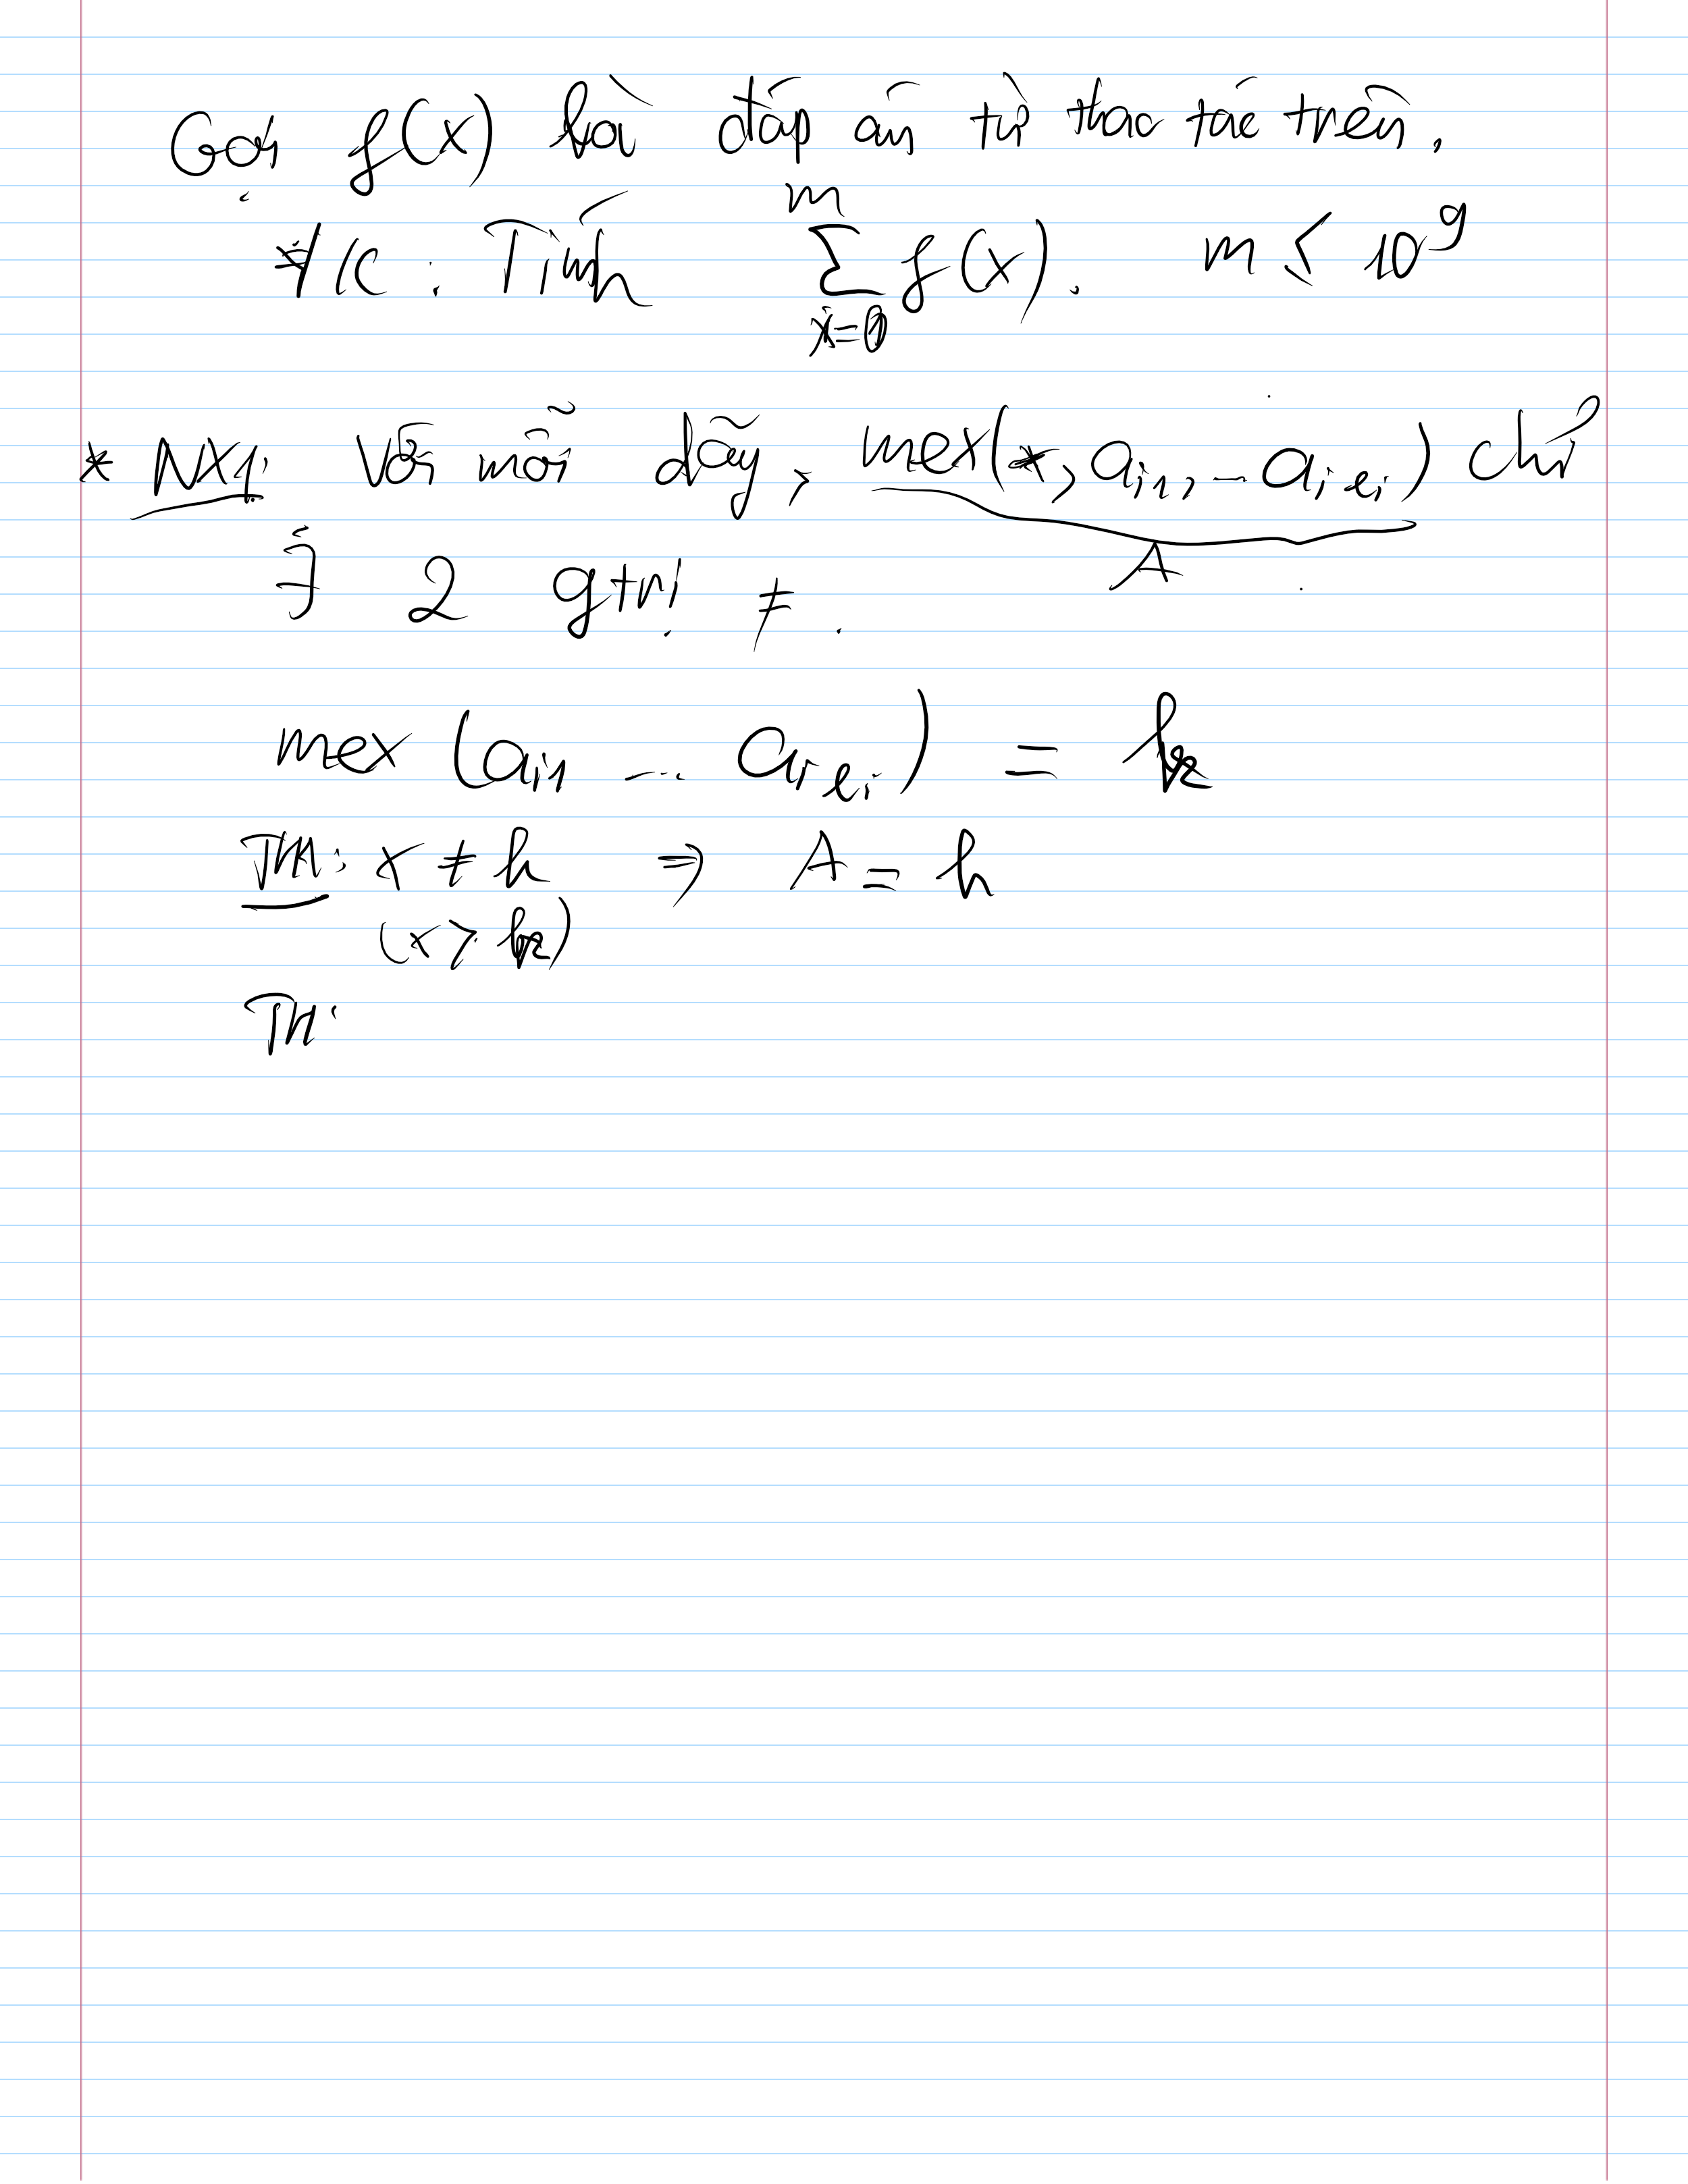 Gọi f(x) là đáp án từ thao tác trên.
Y/C: Tính ∑_{x=0}^{m} f(x). m < 10^9
* NX1: Với mỗi dãy, mex(x, a_{i1}, ... a_{i l_i}) chỉ
A
∃ 2 gtrị ≠.
mex (a_{i1} ... a_{i l_i}) = k
TH: x ≠ k ⇒ A = k
(x > k)
TH: